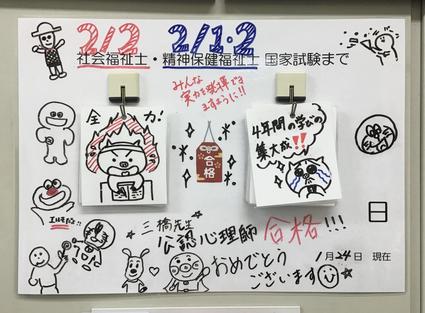 2/2 2/1・2
社会福祉士・精神保健福祉士 国家試験まで
みんな
実力を発揮でき
ますように!!
全力!
合格
4年間の学びの
集大成!!
日
三橋先生
公認心理師 合格!!!
おめでとう
ございます
1月24日 現在